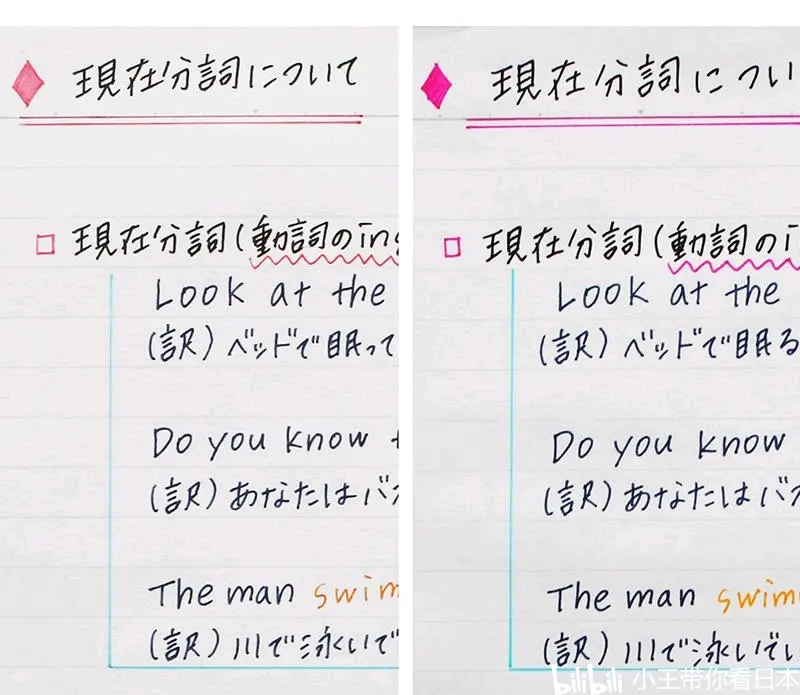 現在分詞について
現在分詞(動詞のing
Look at the
(訳)ベッドで眠って
Do you know
(訳)あなたはバス
The man swim
(訳)川で泳いで
現在分詞につい
現在分詞(動詞のi
Look at the
(訳)ベッドで眠る
Do you know
(訳)あなたはバ
The man swim
(訳)川で泳いでい
bilibili 小王带你看日本